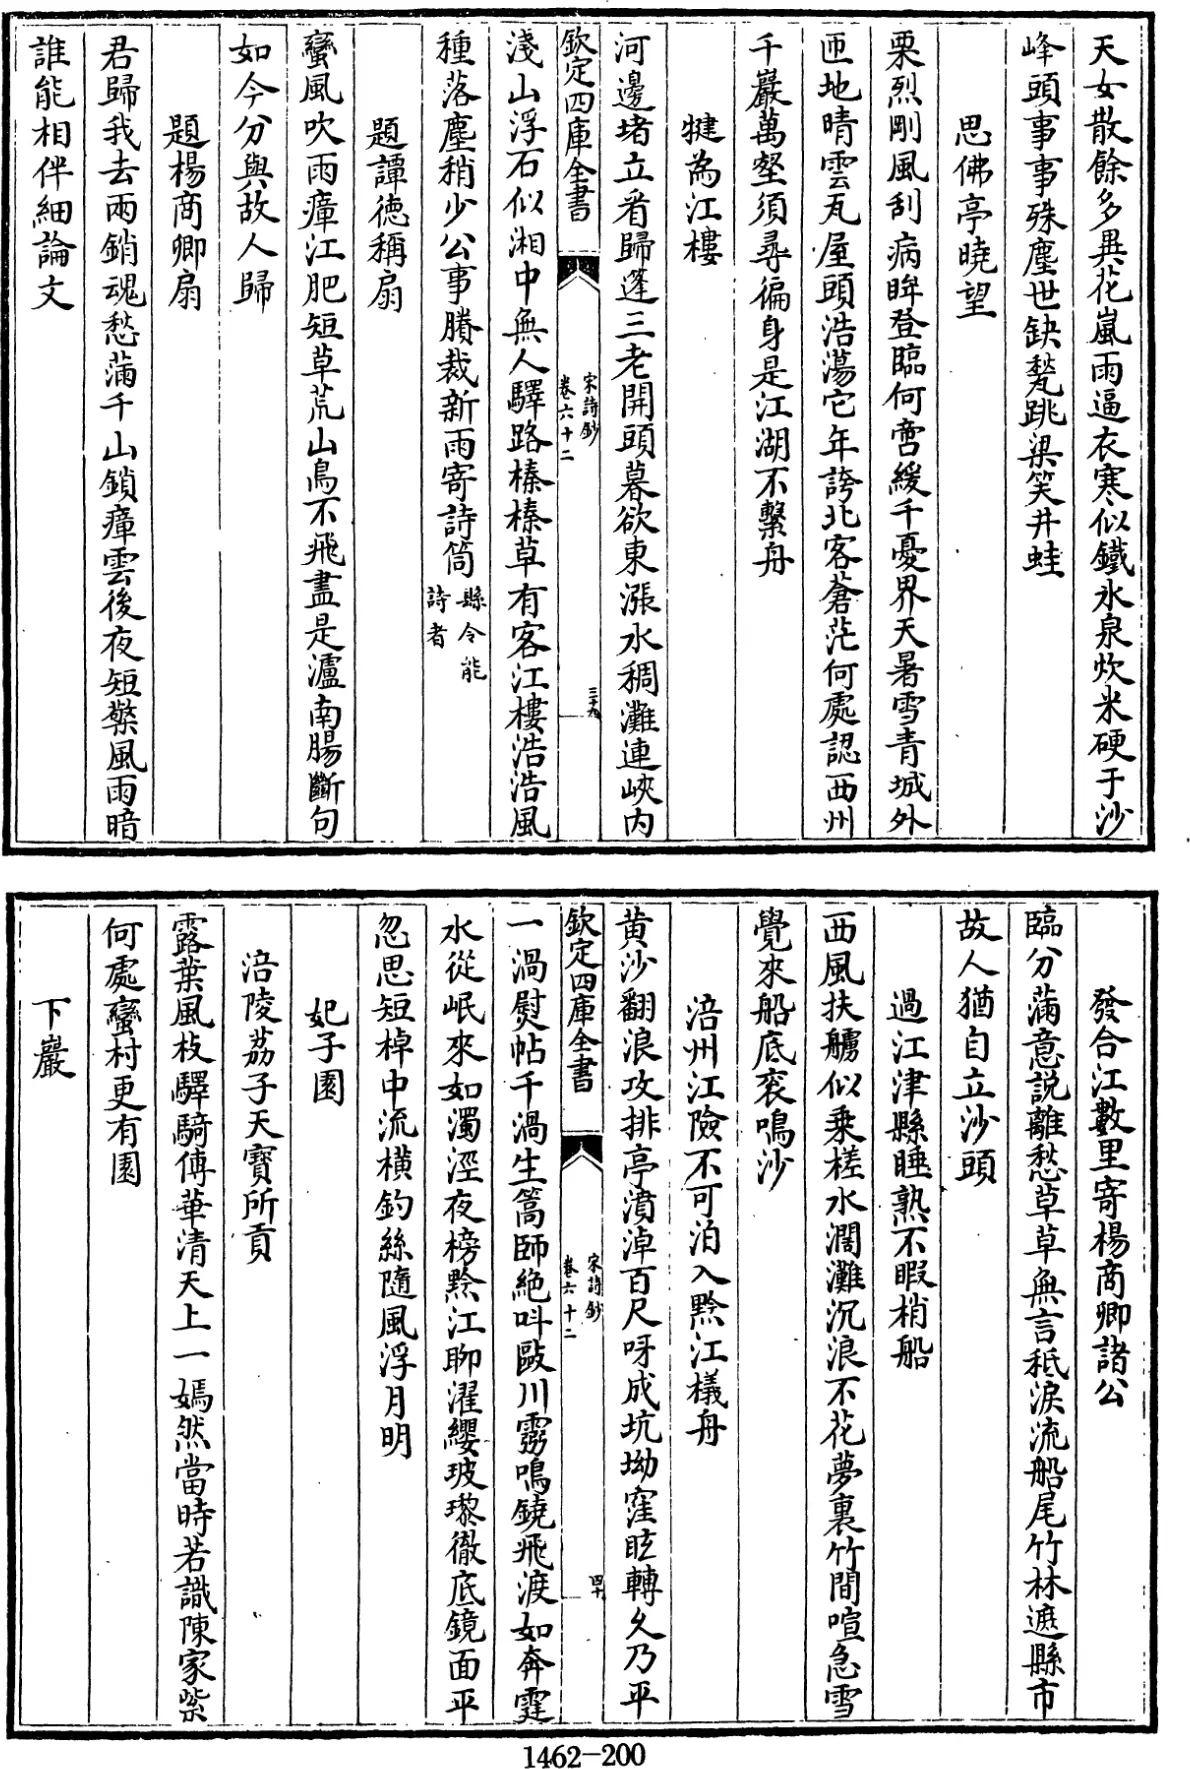 天女散餘多異花嵐雨逼衣寒似鐵氷泉炊米硬于沙
峰頭事事殊塵世缺甃跳梁笑井蛙
思佛亭曉望
栗烈剛風刮病眸登臨何啻緩千憂界天暑雪青城外
匝地晴雲瓦屋頭浩蕩它年誇北客蒼茫何處認西州
千巖萬壑須尋徧身是江湖不繫舟
犍為江樓
河邊堵立看歸蓬三老開頭暮欲東漲水稠灘連峽內
欽定四庫全書
宋詩鈔
卷六十二
三十九
淺山浮石似湘中無人驛路榛榛草有客江樓浩浩風
種落塵稍少公事賸裁新雨寄詩筒
縣令能
詩者
題譚德稱扇
蠻風吹雨瘴江肥短草荒山鳥不飛盡是瀘南腸斷句
如今分與故人歸
題楊商卿扇
君歸我去兩銷魂愁滿千山鎖瘴雲後夜短檠風雨暗
誰能相伴細論文
發合江數里寄楊商卿諸公
臨分滿意説離愁草草無言秪淚流船尾竹林遮縣市
故人猶自立沙頭
過江津縣睡熟不暇梢船
西風扶艣似乗槎水濶灘沉浪不花夢裏竹間喧急雪
覺來船底衮鳴沙
涪州江險不可泊入黔江檥舟
黄沙翻浪攻排亭濆淖百尺呀成坑坳窪眩轉久乃平
欽定四庫全書
宋詩鈔
卷六十二
四十
一渦熨帖千渦生篙師絶呌敺川靈鳴鐃飛渡如奔霆
水從岷來如濁涇夜榜黔江聊濯纓玻瓈徹底鏡面平
忽思短棹中流横釣絲隨風浮月明
妃子園
涪陵荔子天寳所貢
露葉風枝驛騎傳華清天上一嫣然當時若識陳家紫
何處蠻村更有園
下巖
1462-200